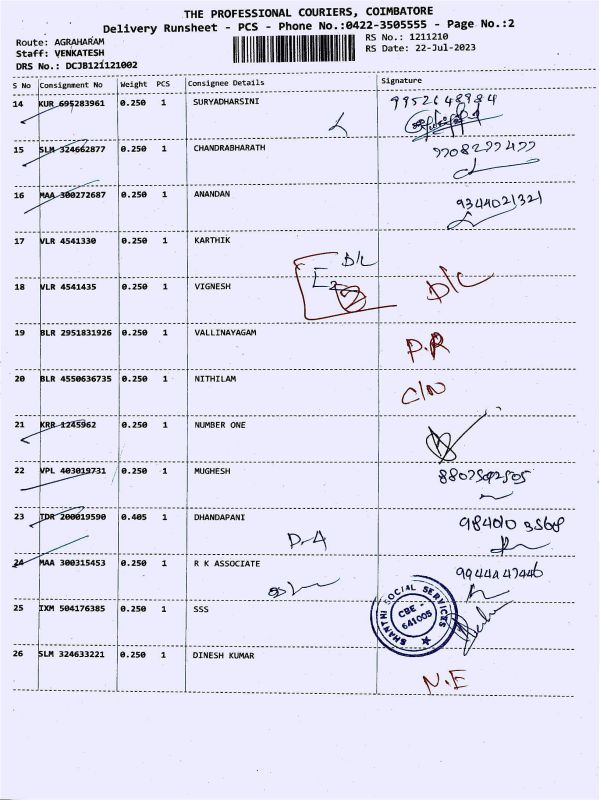 THE PROFESSIONAL COURIERS, COIMBATORE
Delivery Runsheet - PCS - Phone No.:0422-3505555 - Page No.:2
Route: AGRAHARAM
Staff: VENKATESH
DRS No.: DCJB121121002
RS No.: 1211210
RS Date: 22-Jul-2023
S No Consignment No Weight PCS Consignee Details Signature
14 KUR 695283961 0.250 1 SURYADHARSINI 9952648984
15 SLM 324662877 0.250 1 CHANDRABHARATH
16 MAA 300272687 0.250 1 ANANDAN 9344021321
17 VLR 4541330 0.250 1 KARTHIK
D/L
18 VLR 4541435 0.250 1 VIGNESH D/C
19 BLR 2951831926 0.250 1 VALLINAYAGAM P.R
20 BLR 4550636735 0.250 1 NITHILAM C/N
21 KRR 1245962 0.250 1 NUMBER ONE
22 VPL 403019731 0.250 1 MUGHESH
23 TDR 200019590 0.405 1 DHANDAPANI 984010 3568
D-4
24 MAA 300315453 0.250 1 R K ASSOCIATE 9944A47446
25 IXM 504176385 0.250 1 SSS
SHANTHI SOCIAL SERVICES
CBE -
641005
26 SLM 324633221 0.250 1 DINESH KUMAR N.E